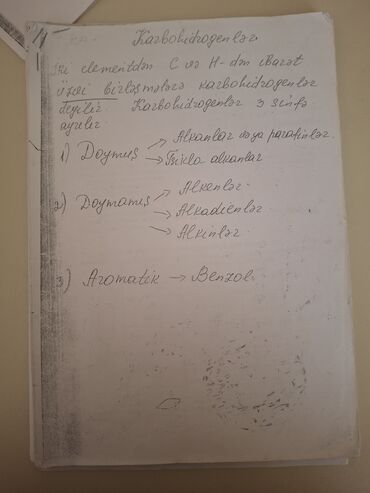 Karbohidrogenlər
İki elementdən C və H-dən ibarət
üzvi birləşmələrə karbohidrogenlər
deyilir. Karbohidrogenlər 3 sinfə
ayrılır.
1) Doymuş → Alkanlar və ya parafinlər.
→ Tsiklo alkanlar
2) Doymamış → Alkenlər
→ Alkadienlər
→ Alkinlər
3) Aromatik → Benzol.